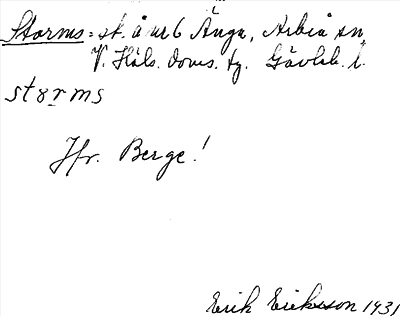 Storms: st. å nr 6 Änga, Arbrå sn,
V. Häls. doms. tg. Gävleb. l.
storms
Jfr. Berge!
Erik Eriksson 1931